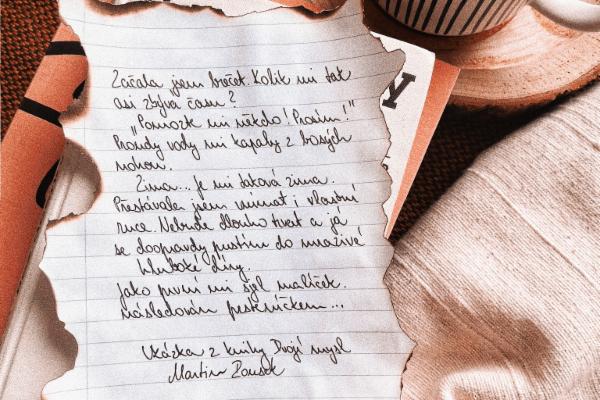 Začala jsem brečet. Kolik mi tak
asi zbývá času?
„Pomozte mi někdo! Prosím!"
Proudy vody mi kapaly z bosých
nohou.
Zima... Je mi taková zima.
Přestávala jsem vnímat i vlastní
ruce. Nebude dlouho trvat a já
se doopravdy pustím do mrazivé
hluboké díry.
Jako první mi sjel malíček.
Následován prsteníčkem...
Ukázka z knihy Dvojí mysl
Martin
Y